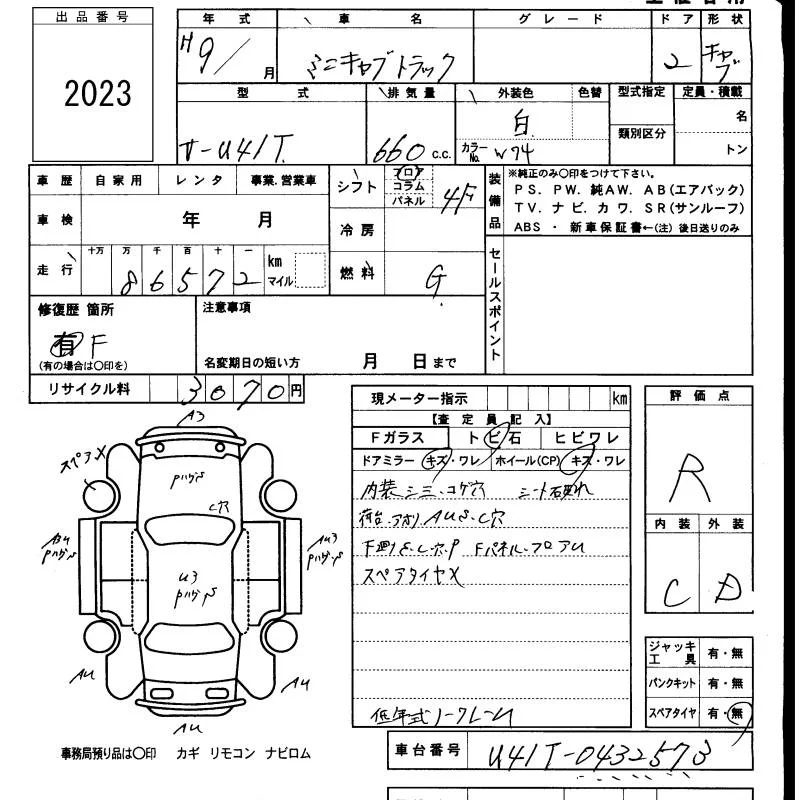 出品番号
2023
年式 車名 グレード ドア 形状
H 9/ 月 ミニキャブトラック 2 キャブ
型式 排気量 外装色 色替 型式指定 定員・積載
名
白 類別区分
V-U41T 660 c.c. カラーNo. W74 トン
車歴 自家用 レンタ 事業.営業車
シフト フロア コラム パネル 4F
装備品
※純正のみ〇印をつけて下さい。
PS. PW. 純AW. AB(エアバック)
TV. ナビ. カワ. SR(サンルーフ)
ABS ・ 新車保証書←(注) 後日送りのみ
車検 年 月
冷房
走行 十万 万 千 百 十 一
86572 km マイル
燃料 G
セールスポイント
修復歴 箇所 注意事項
有 F
(有の場合は〇印を) 名変期日の短い方 月 日まで
リサイクル料 3070円
現メーター指示 km
評価点
R
【査定員記入】
Fガラス トビ石 ヒビワレ
ドアミラー キズ・ワレ ホイール(CP) キズ・ワレ
内装シミ.コゲ穴 シート破れ
荷台.アオリAUS.C穴
下廻りS.C.穴.P Fパネル.フロアU
スペアタイヤX
低年式ノークレーム
内装 外装
C D
A3
スペアX
Pハゲ.S
C穴
U3
Pハゲ.S
Pハゲ.S
AU3
Pハゲ.S
AU
AU
AU
ジャッキ工具 有・無
パンクキット 有・無
スペアタイヤ 有・無
事務局預り品は〇印 カギ リモコン ナビロム
車台番号 U41T-0432573